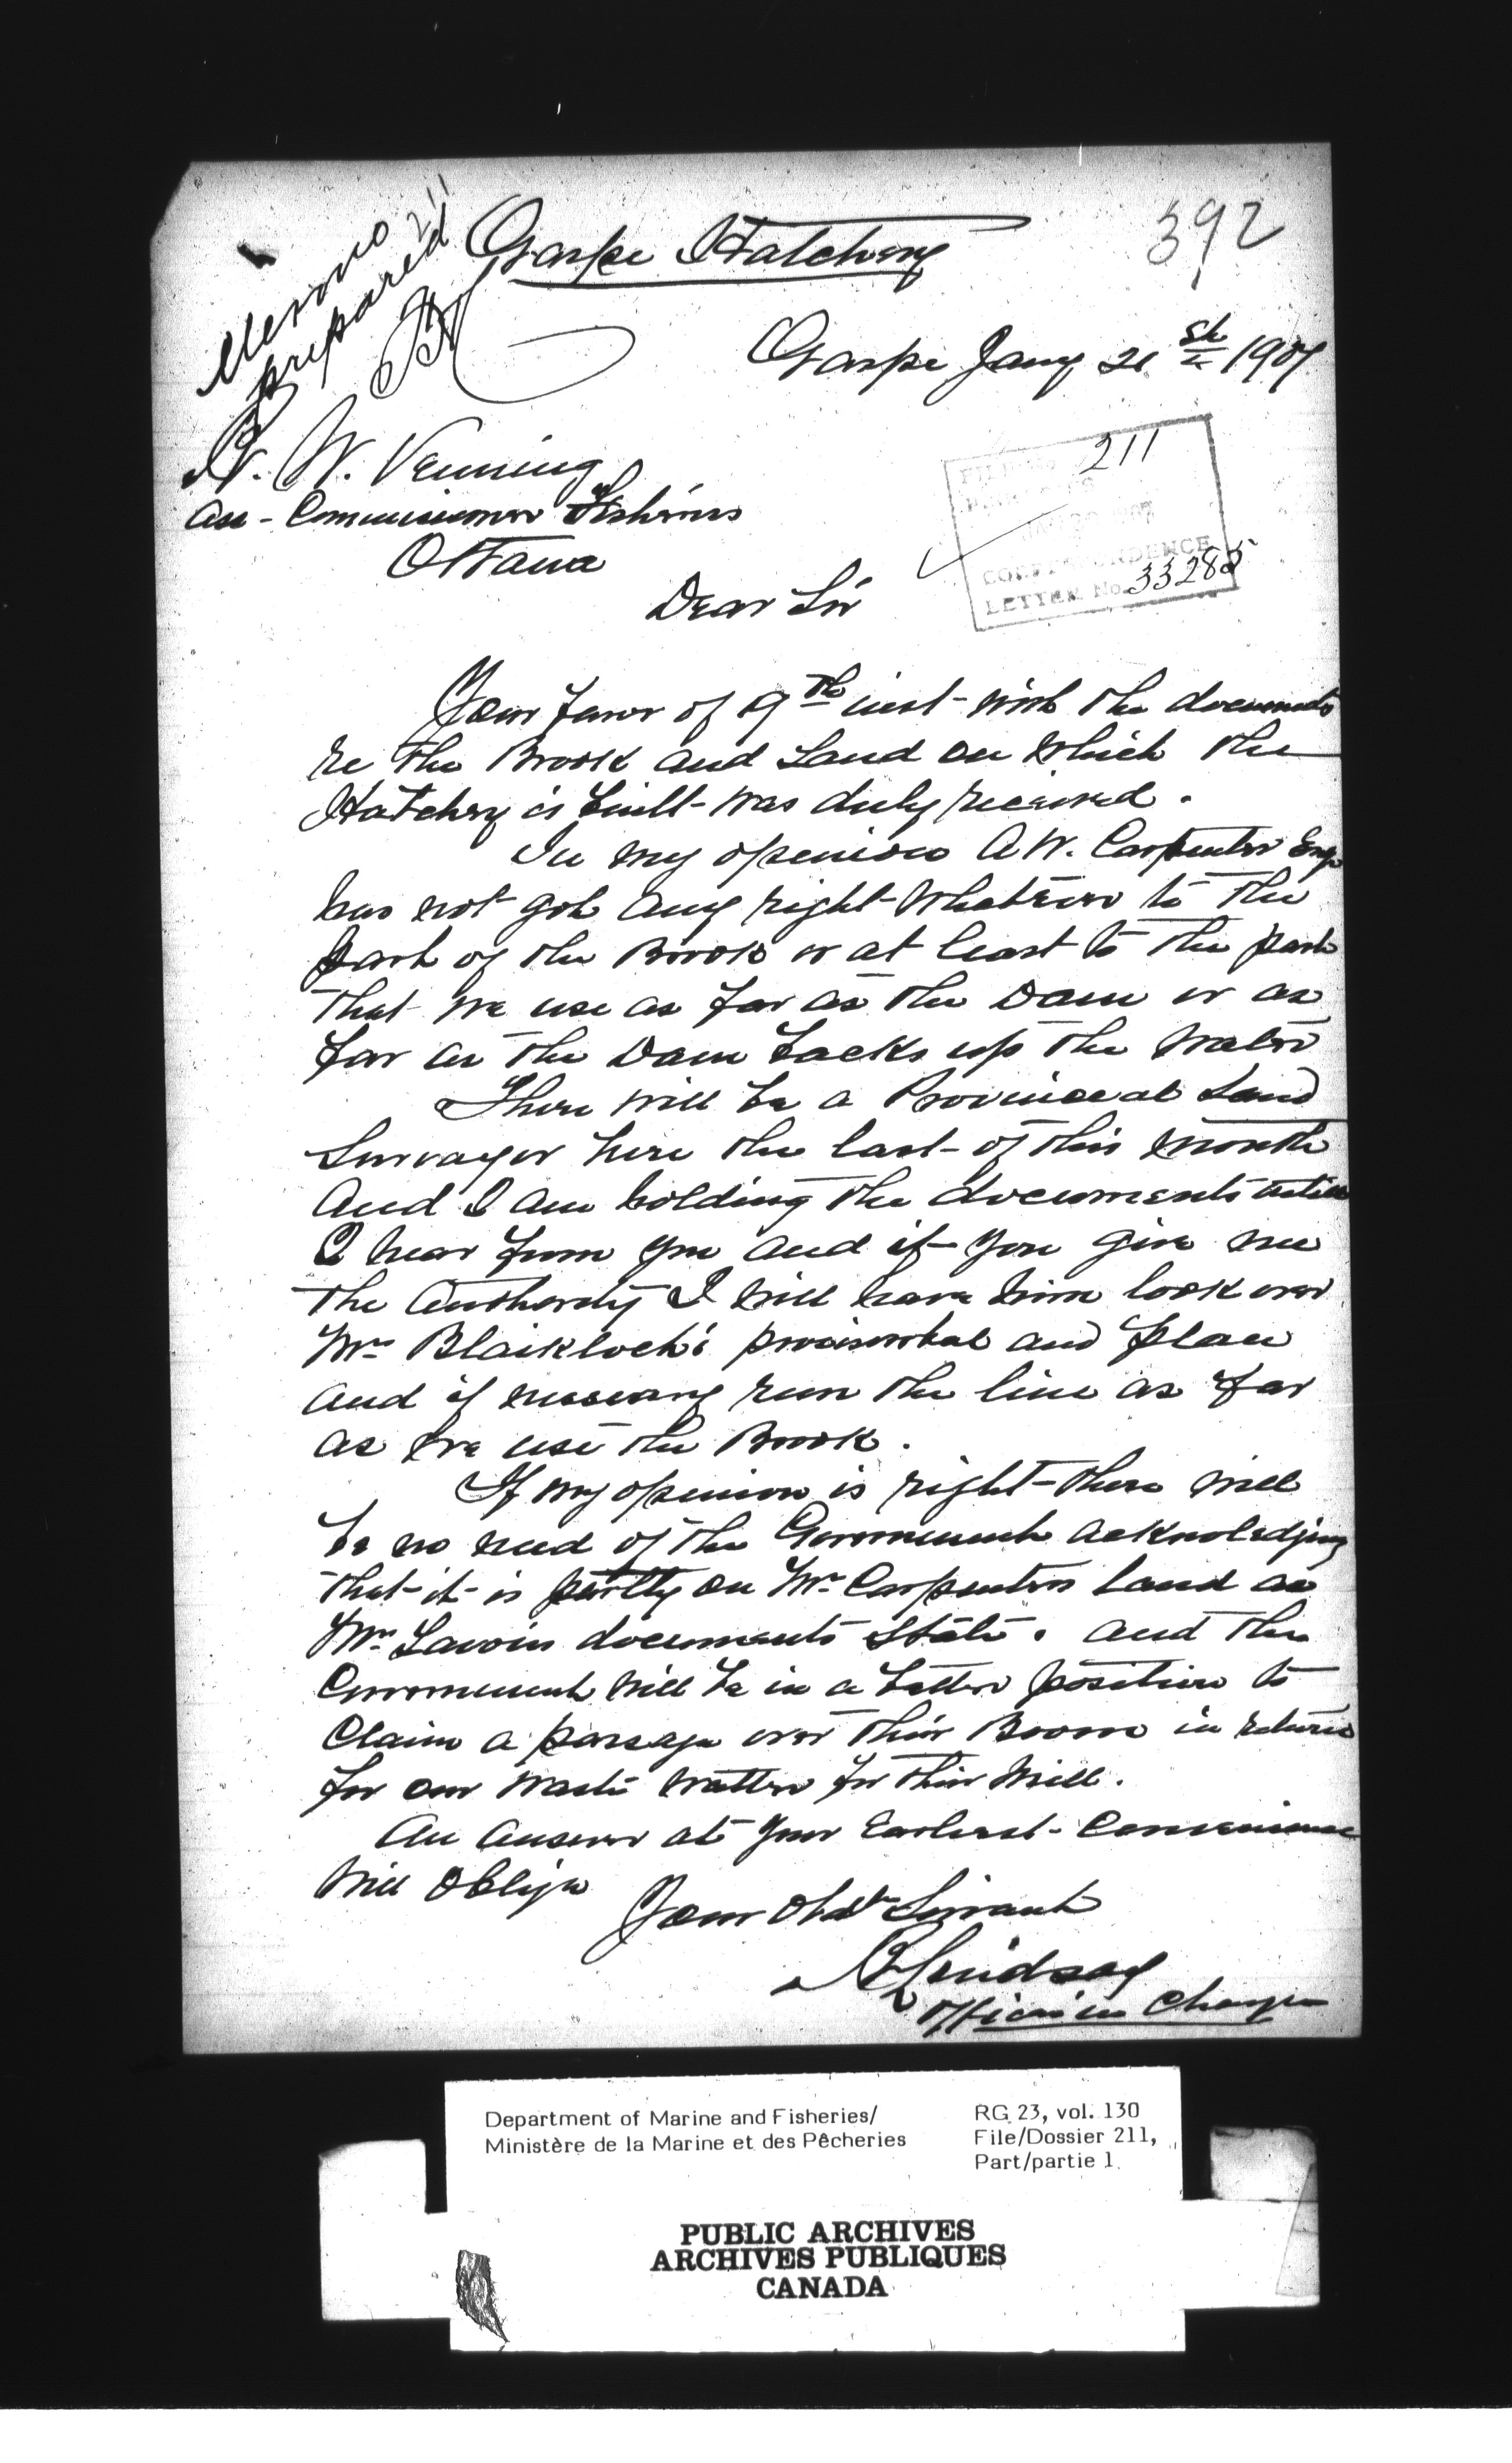 392
Memo
prepared
Gaspe Hatchery
Gaspe Jany 21st 1907
R. W. Venning
Ass-Commissioner of Fisheries
Ottawa
211
CORRESPONDENCE
LETTER No. 33285
Dear Sir
Your favor of 9th inst- with the documents
re the Brook and Land on which the
Hatchery is built- was duly received.
In my openion A.W. Carpenter Esqr
has not got any right- whatever to the
part of the Brook or at least to the part
that we use as far as the Dam or as
far as the Dam backs up the water
There will be a Provincial Land
Survayor here the last- of this month
and I am holding the documents untill
I hear from you and if you give me
the Authority I will have him look over
Mr Blaiklock's and plan
and if run the line as far
as we use the Brook.
If my openion is right- there will
be no need of the Government acknoledging
that- it- is partly on Mr Carpenters land as
Mr Lavois documents state. and the
Government will be in a better position to
Claim a passage over their Boom in return
for our waste watter for their Mill.
An answer at your Earliest- Convenience
Will Oblige
Your Obdt Servant
Lindsay
Officer in Charge
Department of Marine and Fisheries/
Ministère de la Marine et des Pêcheries
RG 23, vol. 130
File/Dossier 211,
Part/partie 1
PUBLIC ARCHIVES
ARCHIVES PUBLIQUES
CANADA